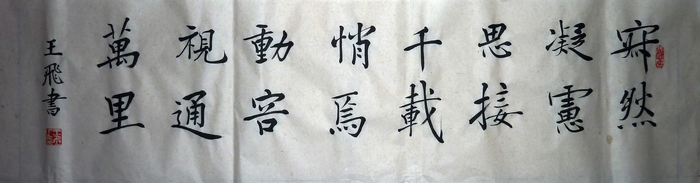 寂然
凝慮
思接
千載
悄焉
動容
視通
萬里
王飛書